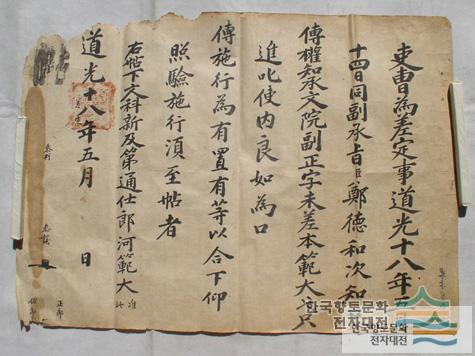 吏曹爲差定事道光十八年五
十四日同副承旨臣鄭德和次知
傳權知承文院副正字未差本範大只
進叱使內良如爲口
傳施行爲有置有等以合下仰
照驗施行須至帖者
右帖下文科新及第通仕郎河範大 准此
道光十八年五月 日
正郎
한국향토문화
전자대전